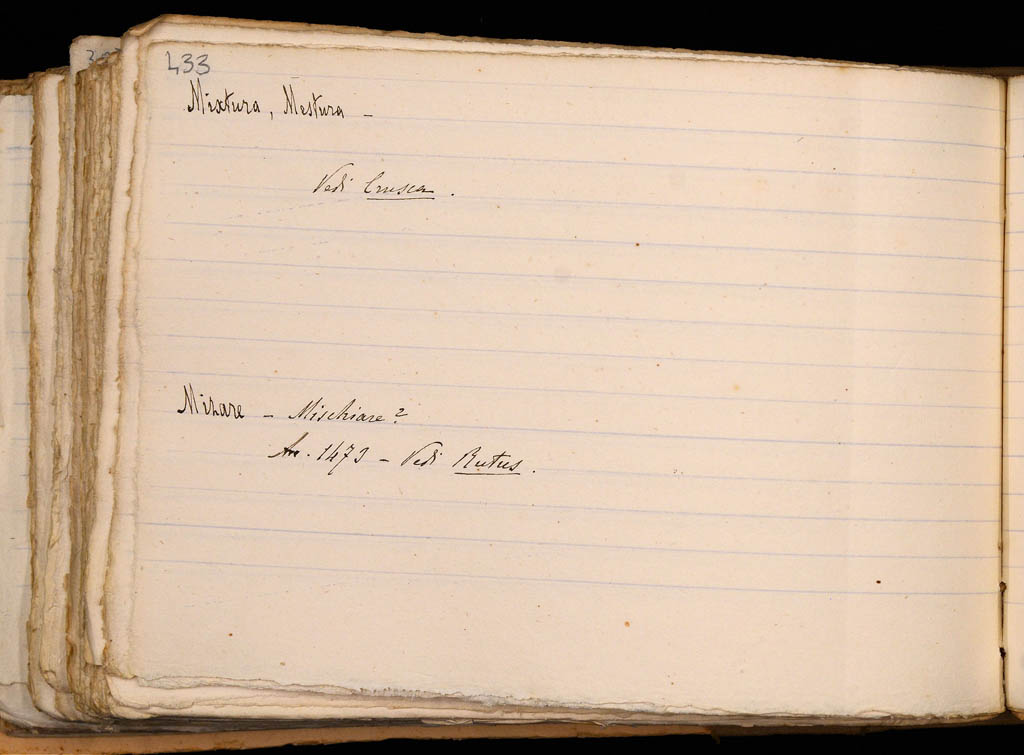 433
Mixtura, Mestura –
Vedi Crusca.
Mizare – Mischiare?
An. 1473 – Vedi Rutus.